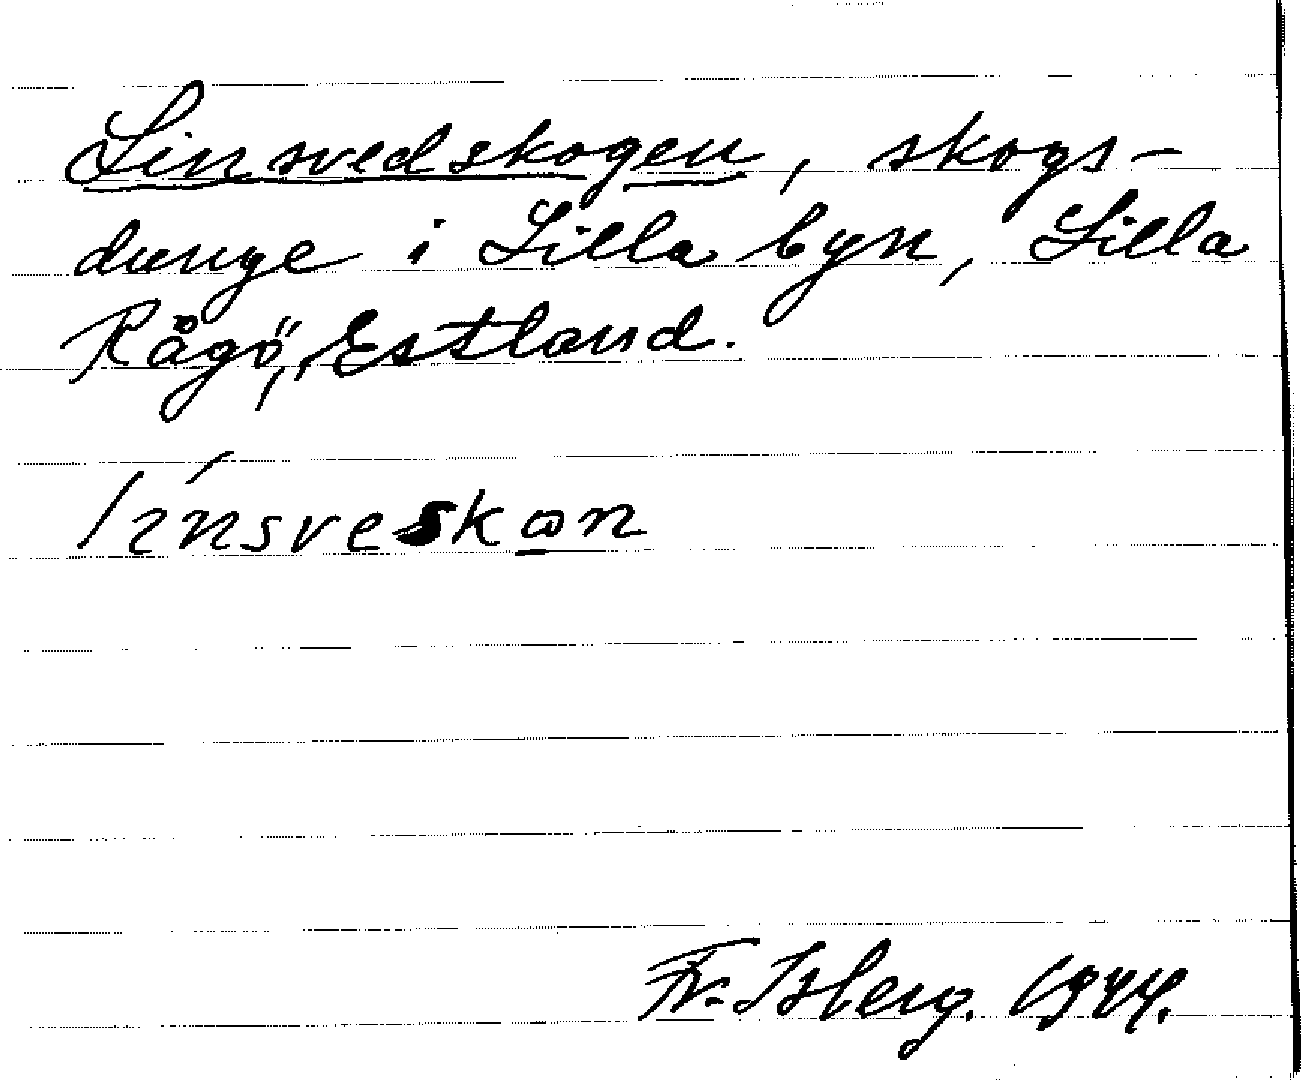 Linsvedskogen, skogs-
dunge i Lilla byn, Lilla
Rågö, Estland.
línsveskan
Fr. Isberg. 1944.